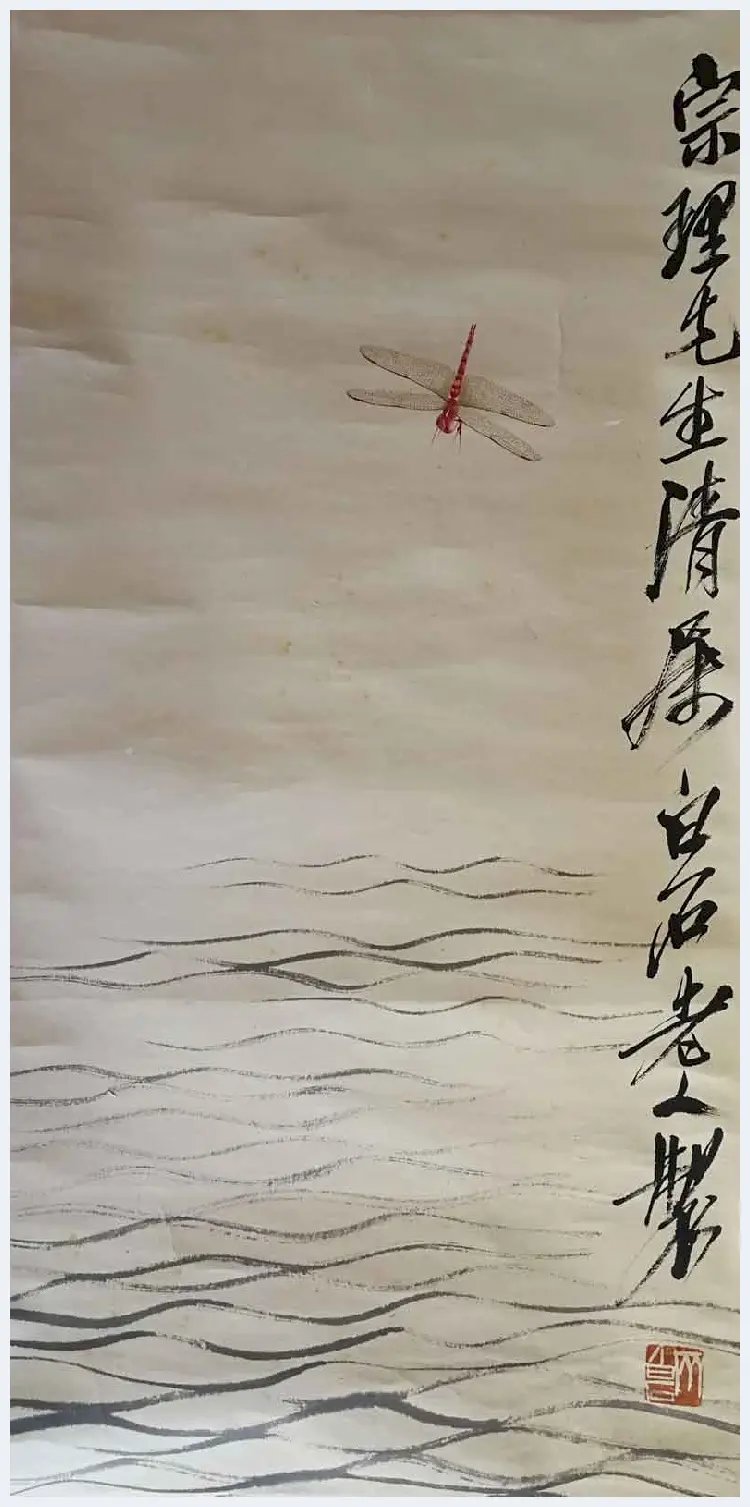 宗理先生清屬白石老人製